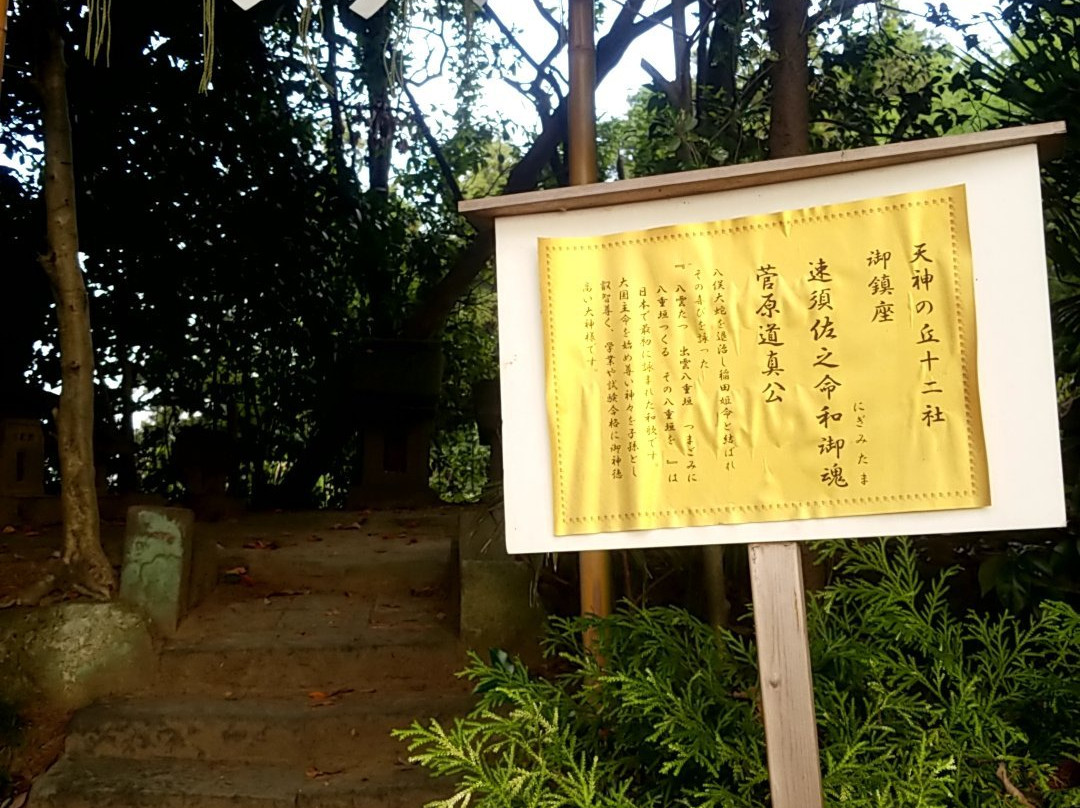 天神の丘十二社
御鎮座
にぎみたま
速須佐之命和御魂
菅原道真公
八俣大蛇を退治し稲田姫命と結ばれ
その喜びを詠った
『八雲たつ 出雲八重垣 つまごみに
八重垣つくる その八重垣を 』は
日本で最初に詠まれた和歌です。
大国主命を始め尊い神々を子孫とし
叡智尊く、学業や試験合格に御神徳
高い大神様です。